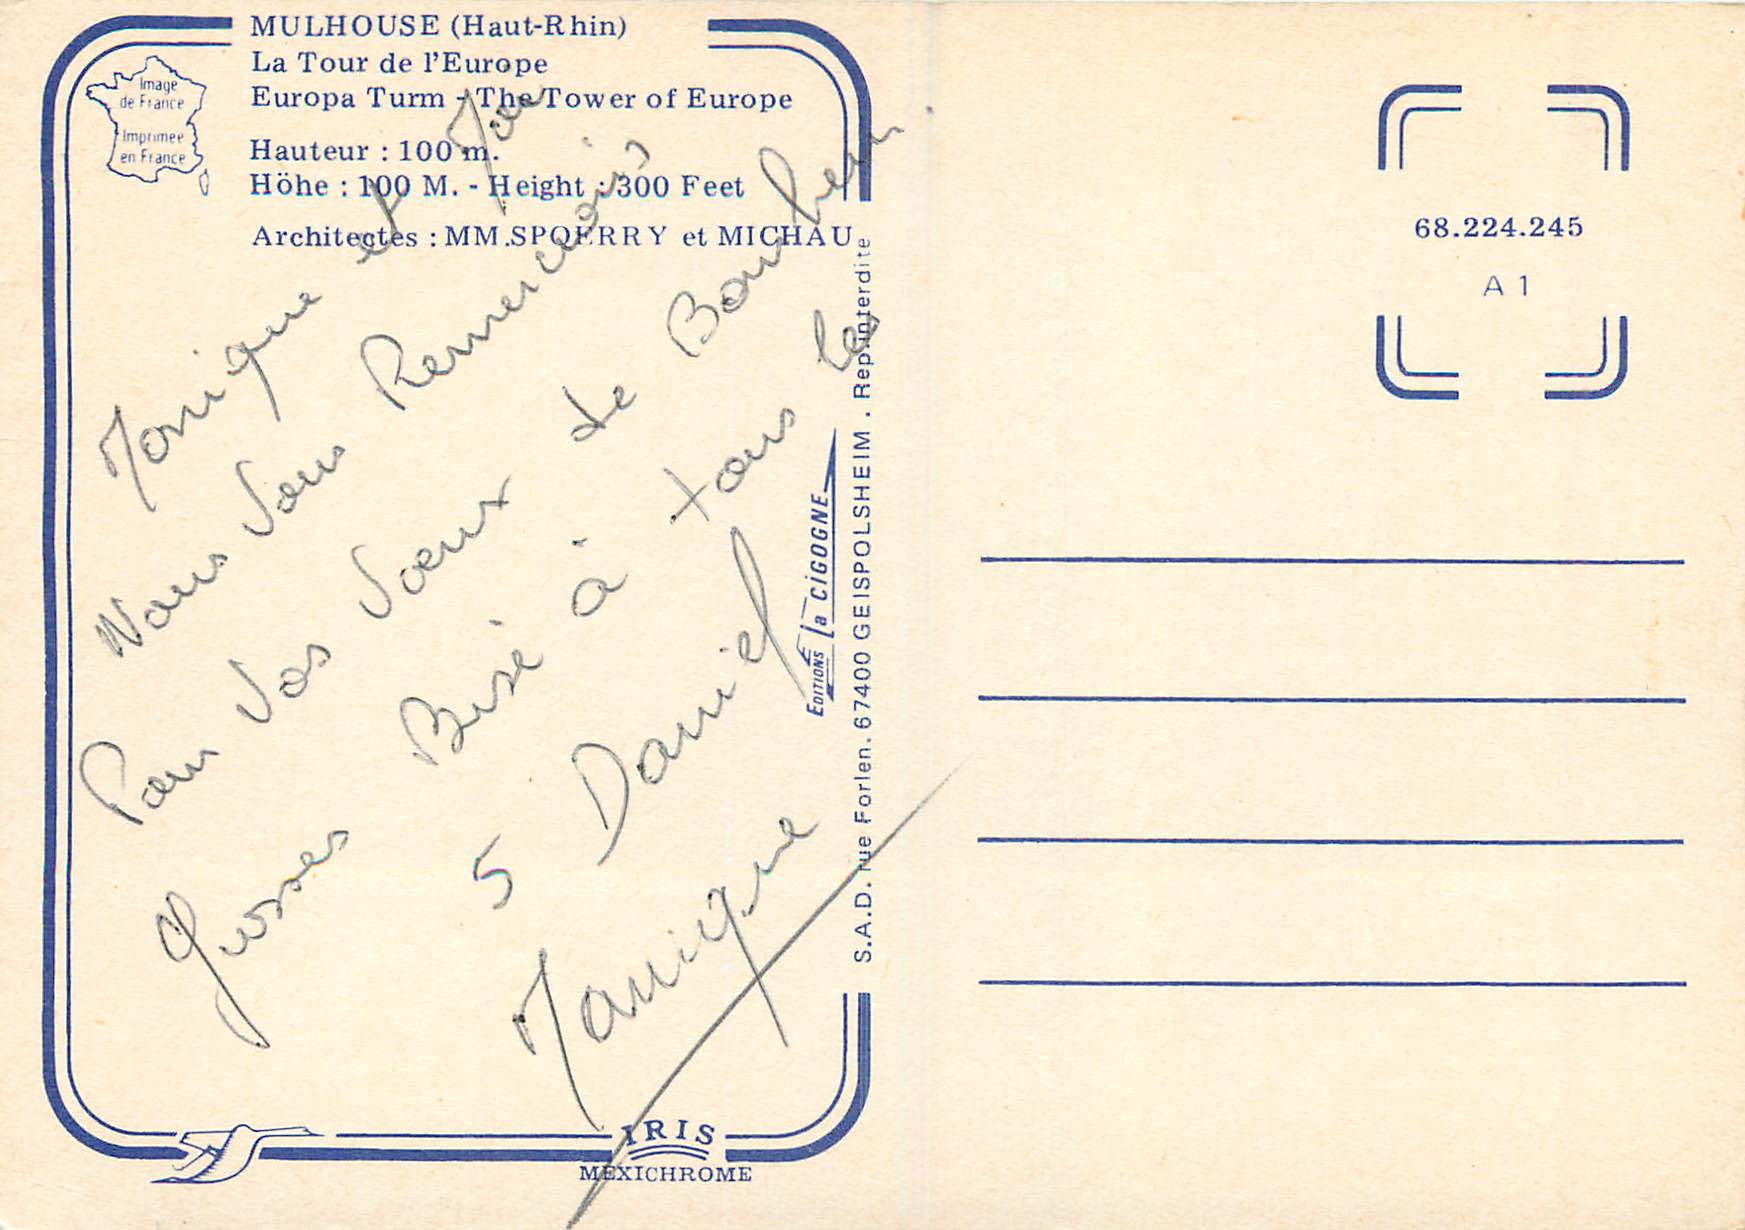 MULHOUSE (Haut-Rhin)
La Tour de l'Europe
Europa Turm - The Tower of Europe
Hauteur : 100 m.
Höhe : 100 M. - Height : 300 Feet
Architectes : MM.SPOERRY et MICHAU
Image
de France
Imprimée
en France
Monique et Moi
Nous Vous Remercions
Pour Vos Voeux de Bonheur.
Grosses Bisé à tous les
5 Daniel
Monique
EDITIONS la CIGOGNE
S.A.D. rue Forlen. 67400 GEISPOLSHEIM . Rep.interdite
IRIS
MEXICHROME
68.224.245
A 1